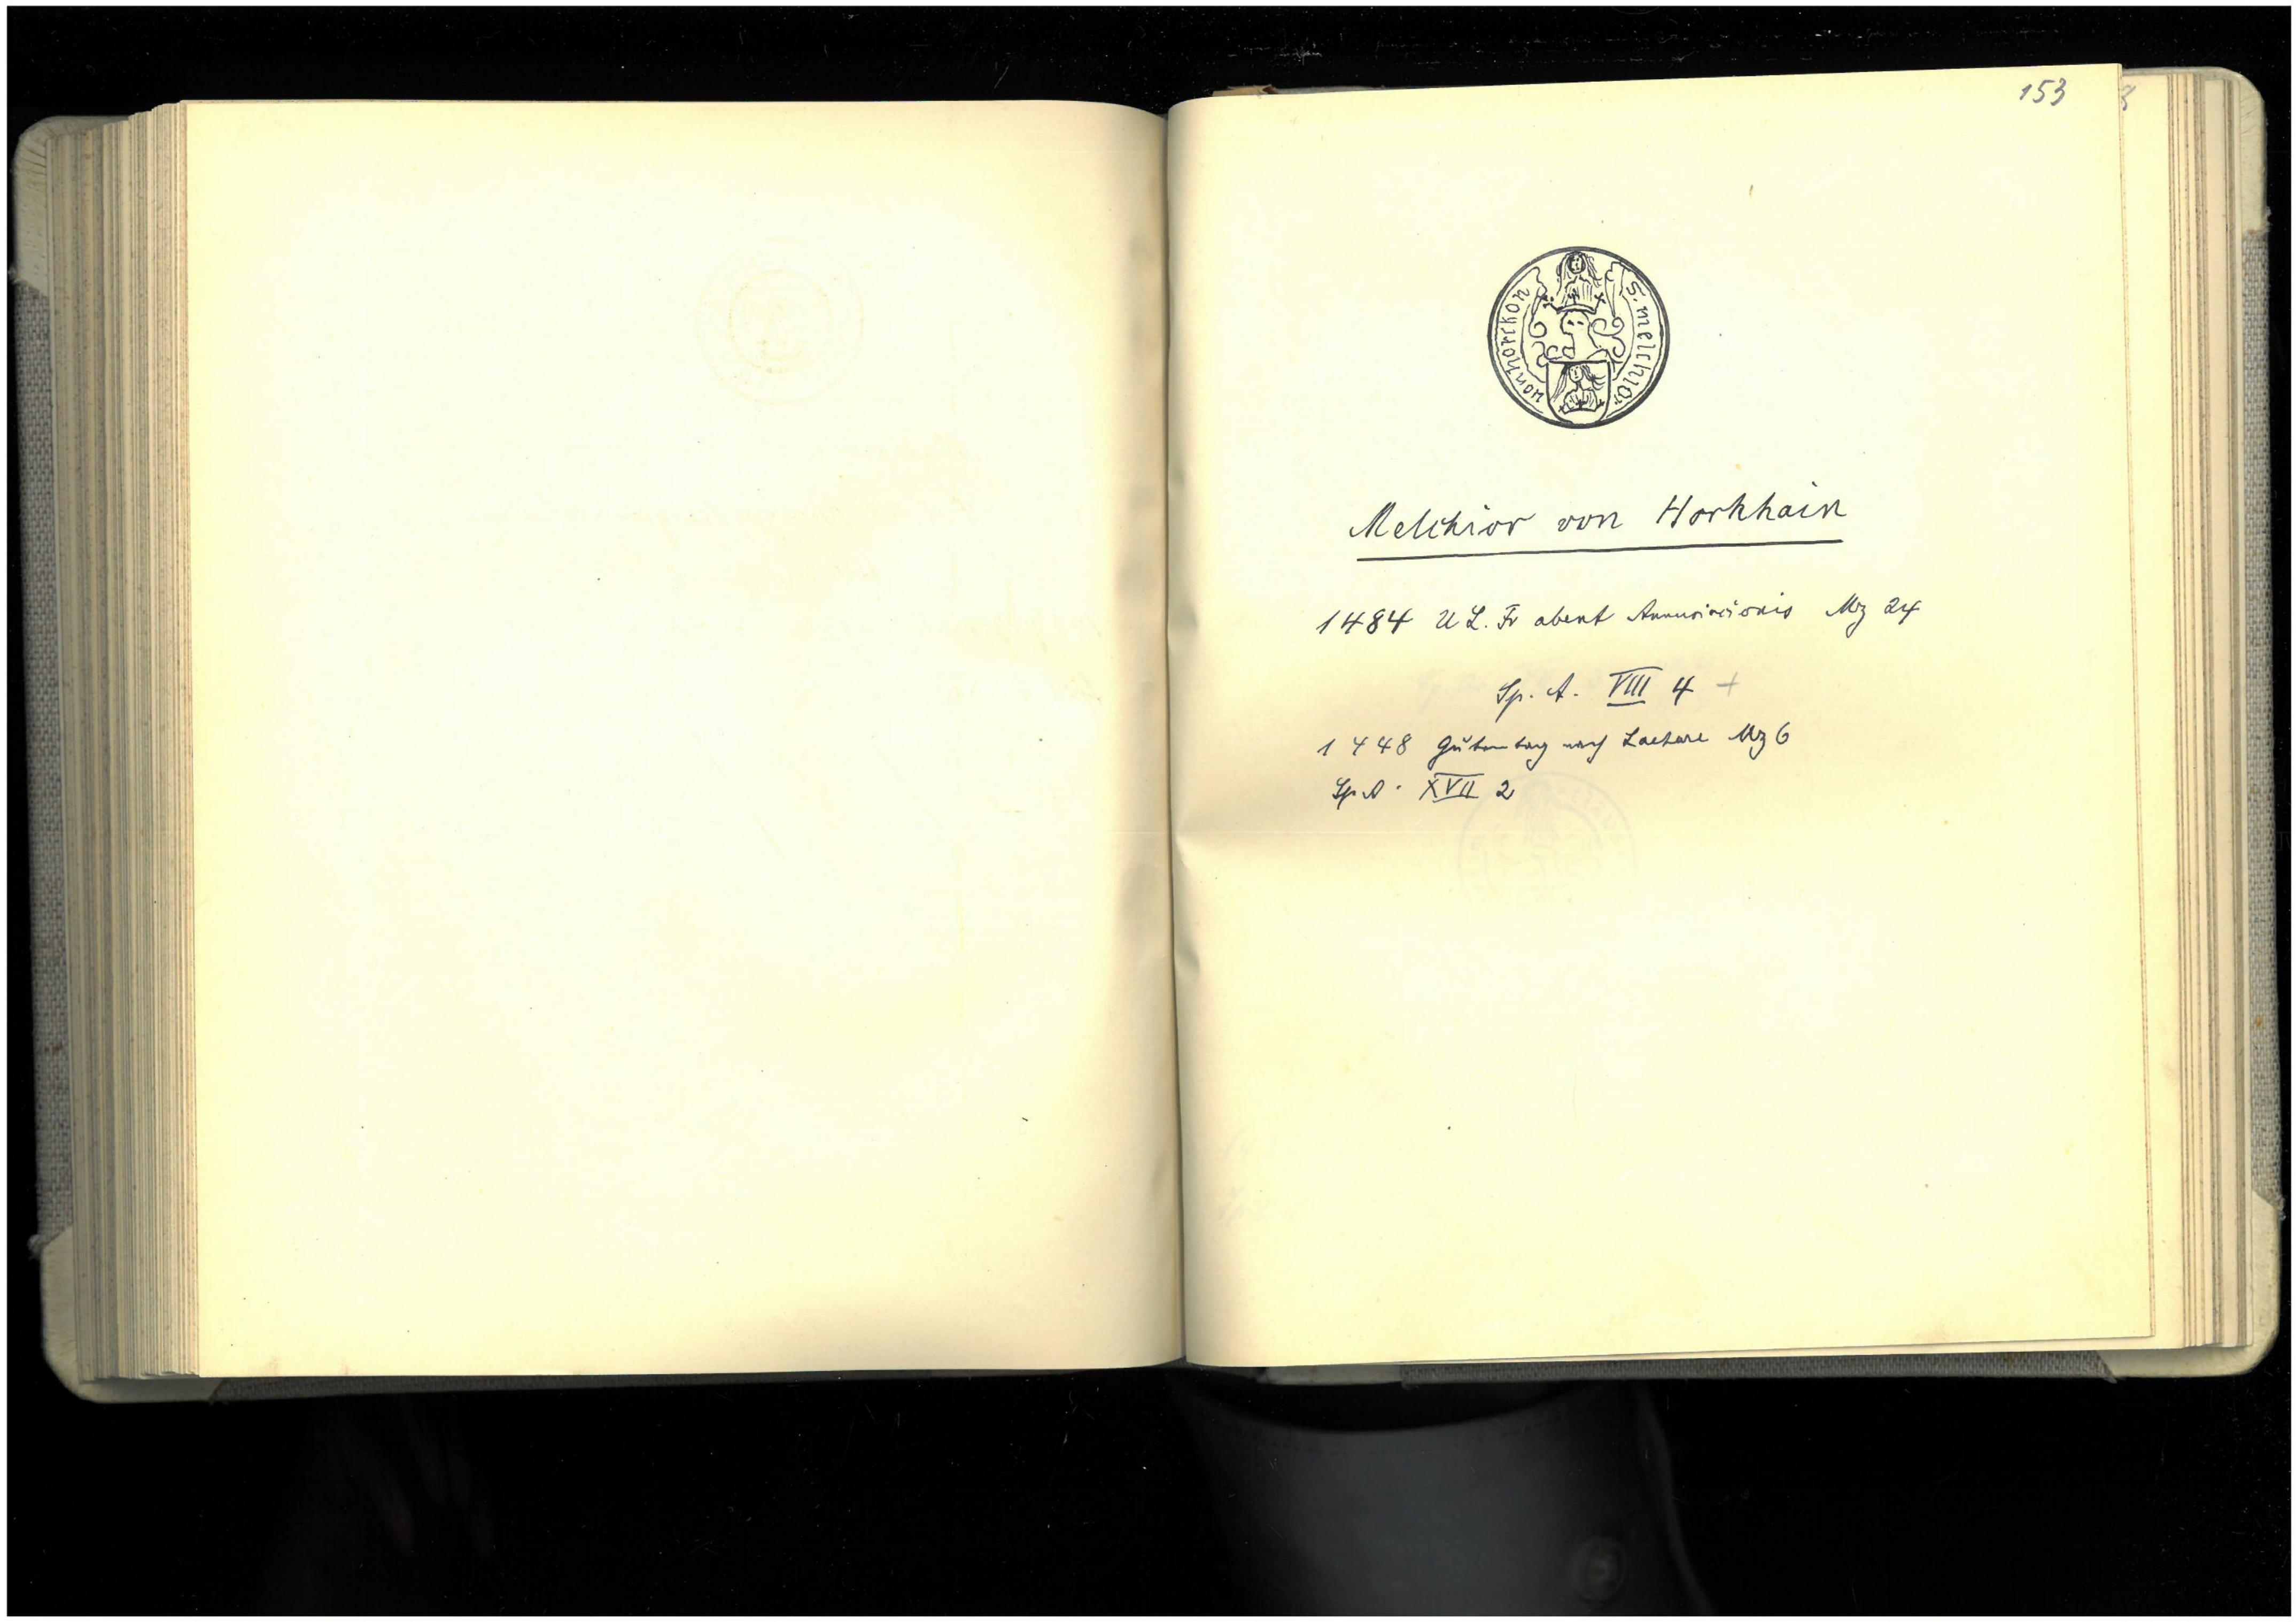 153
S. melchior
von horckon
Melchior von Horkhain
1484 U L. Fr abent Annunciacionis Mz 24
Sp. A. VIII 4 +
1448 gutemtag nach Laetare Mz 6
Sp. A. XVII 2